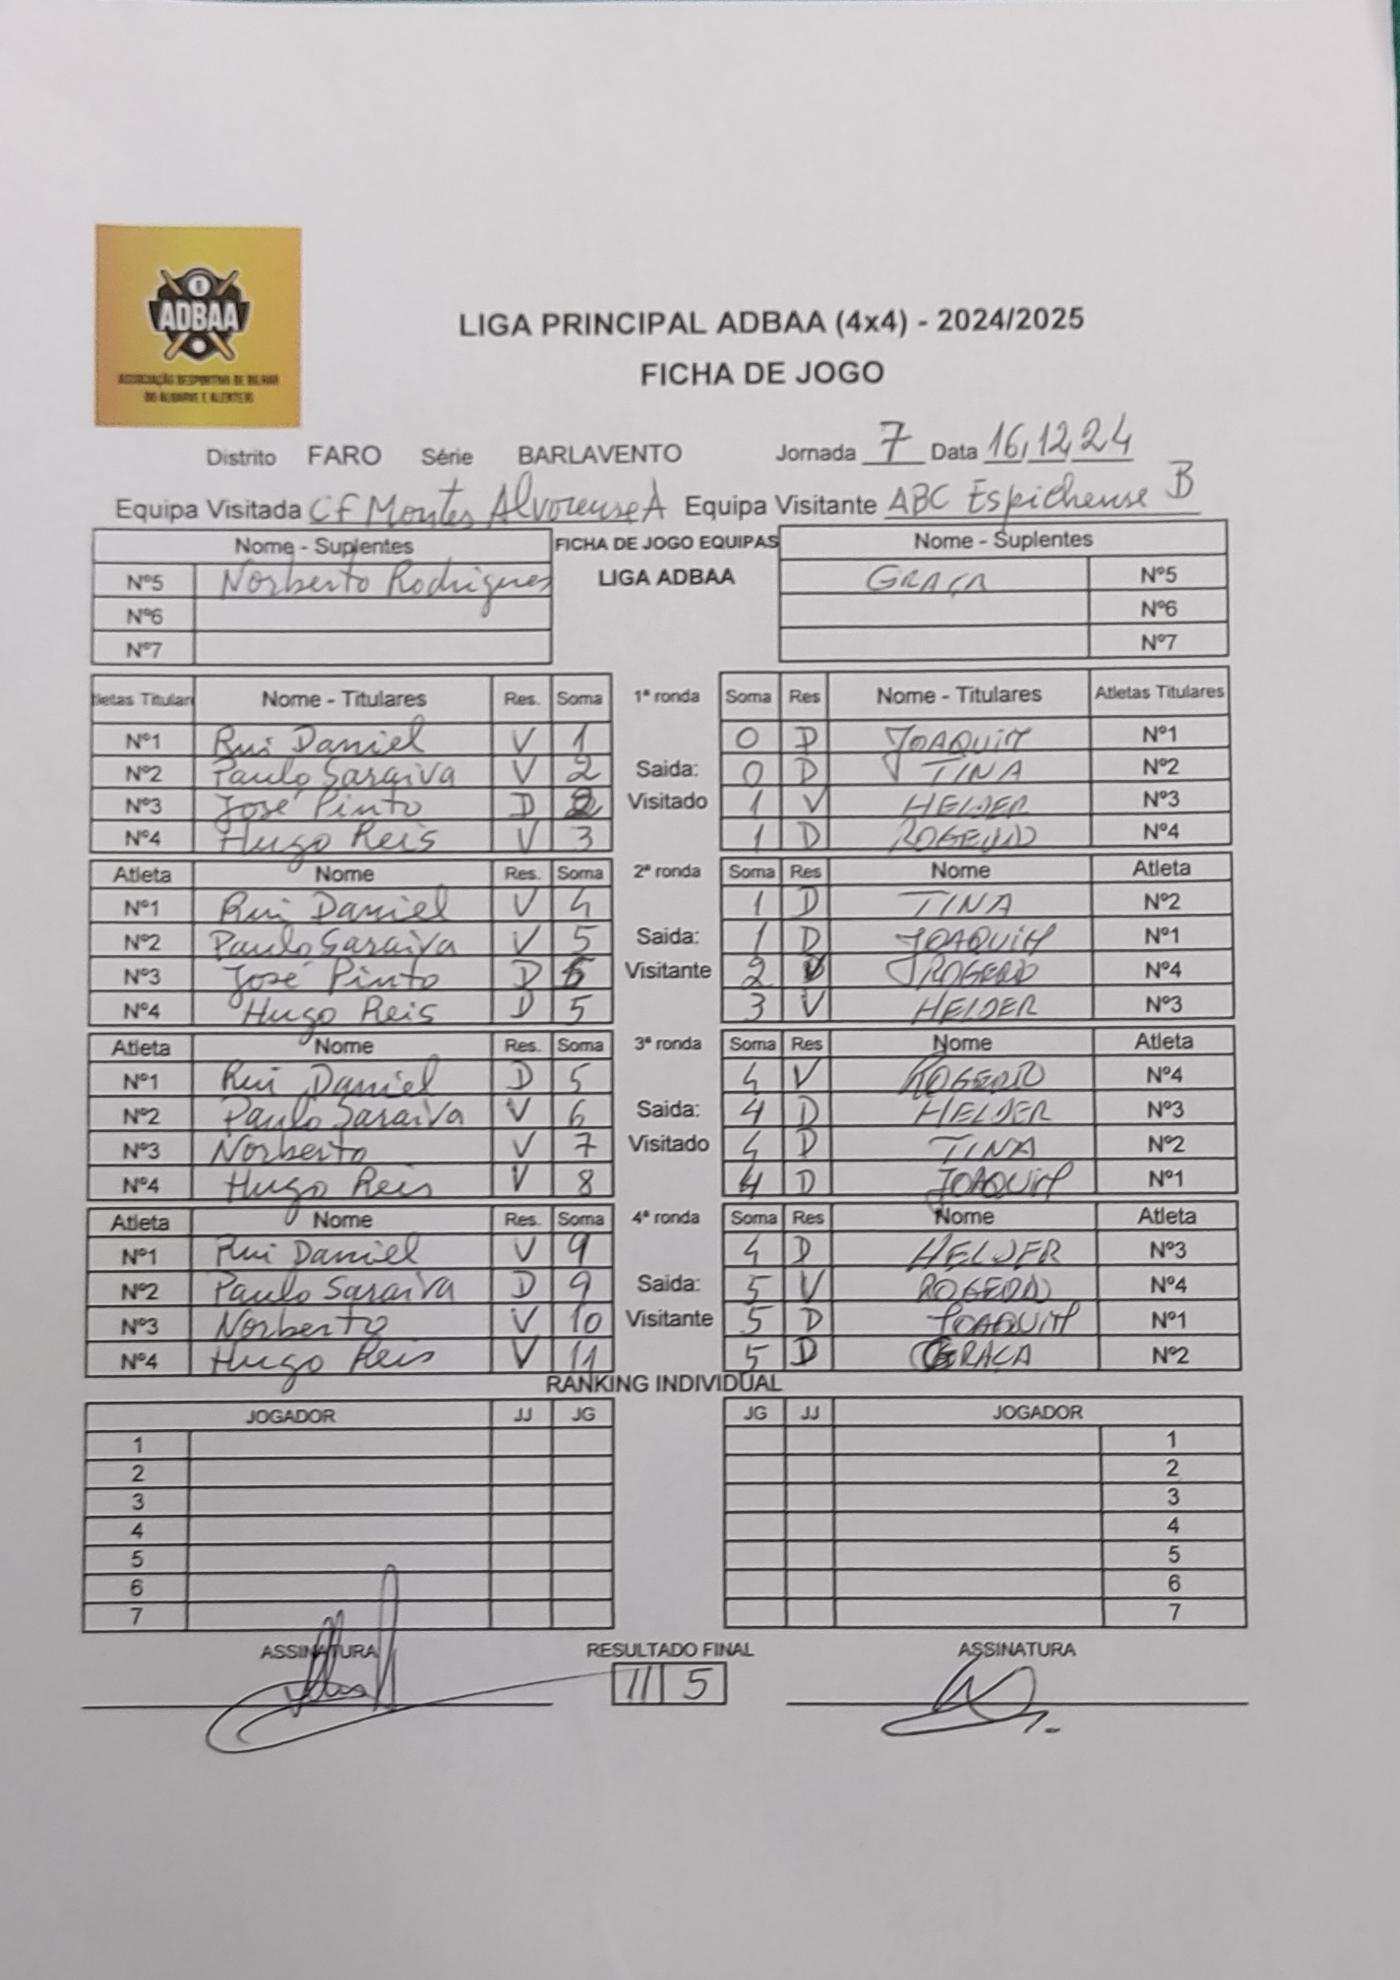 ADBAA
ASSOCIAÇÃO DESPORTIVA DE BILHAR
DO ALGARVE E ALENTEJO
LIGA PRINCIPAL ADBAA (4x4) - 2024/2025
FICHA DE JOGO
Distrito FARO Série BARLAVENTO Jornada 7 Data 16,12,24
Equipa Visitada CF Montes Alvorense A Equipa Visitante ABC Espichense B
Nome - Suplentes FICHA DE JOGO EQUIPAS Nome - Suplentes
Nº5 Norberto Rodrigues LIGA ADBAA GRAÇA Nº5
Nº6 Nº6
Nº7 Nº7
letas Titular Nome - Titulares Res. Soma 1ª ronda Soma Res Nome - Titulares Atletas Titulares
Nº1 Rui Daniel V 1 0 D JOAQUIM Nº1
Nº2 Paulo Saraiva V 2 Saida: 0 D TINA Nº2
Nº3 José Pinto D 2 Visitado 1 V HELDER Nº3
Nº4 Hugo Reis V 3 1 D ROGERIO Nº4
Atleta Nome Res. Soma 2ª ronda Soma Res Nome Atleta
Nº1 Rui Daniel V 4 1 D TINA Nº2
Nº2 Paulo Saraiva V 5 Saida: 1 D JOAQUIM Nº1
Nº3 José Pinto D 5 Visitante 2 V ROGERIO Nº4
Nº4 Hugo Reis D 5 3 V HELDER Nº3
Atleta Nome Res. Soma 3ª ronda Soma Res Nome Atleta
Nº1 Rui Daniel D 5 4 V ROGERIO Nº4
Nº2 Paulo Saraiva V 6 Saida: 4 D HELDER Nº3
Nº3 Norberto V 7 Visitado 4 D TINA Nº2
Nº4 Hugo Reis V 8 4 D JOAQUIM Nº1
Atleta Nome Res. Soma 4ª ronda Soma Res Nome Atleta
Nº1 Rui Daniel V 9 4 D HELDER Nº3
Nº2 Paulo Saraiva D 9 Saida: 5 V ROGERIO Nº4
Nº3 Norberto V 10 Visitante 5 D JOAQUIM Nº1
Nº4 Hugo Reis V 11 5 D GRACA Nº2
RANKING INDIVIDUAL
JOGADOR JJ JG JG JJ JOGADOR
1 1
2 2
3 3
4 4
5 5
6 6
7 7
ASSINATURA RESULTADO FINAL ASSINATURA
11 5